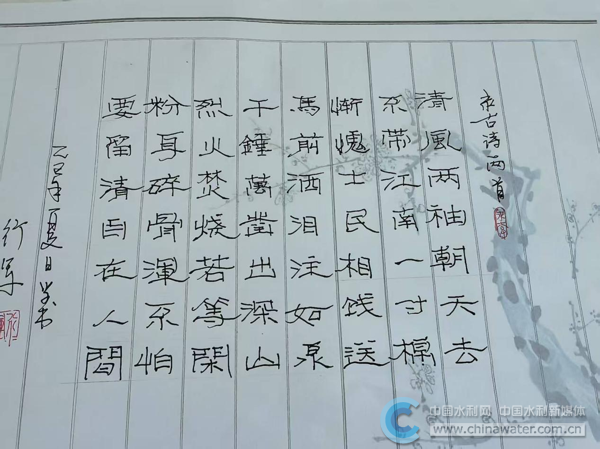 古诗两首
清風两袖朝天去
不带江南一寸棉
慚愧士民相饯送
馬前洒泪注如泉
千錘萬鑿出深山
烈火焚烧若等閑
粉身碎骨渾不怕
要留清白在人間
乙巳年夏日
行军
中国水利网 中国水利新媒体
www.chinawater.com.cn